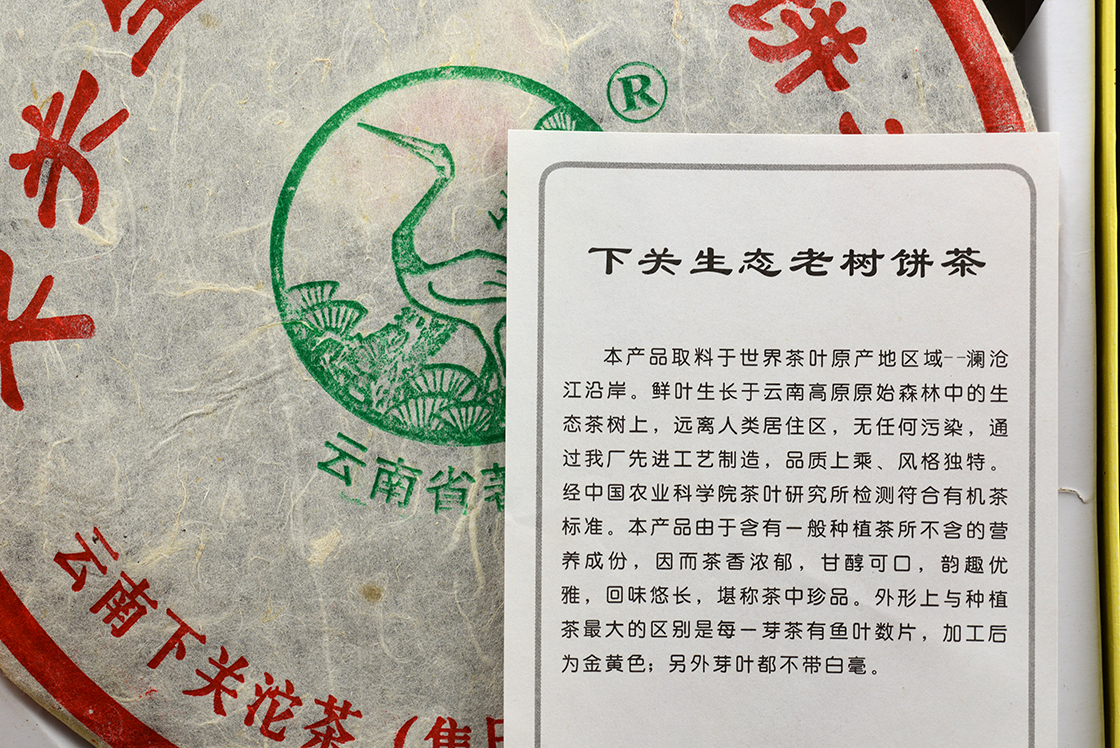 下关生
饼
®
云南省著
云南下关沱茶（集
下关生态老树饼茶
本产品取料于世界茶叶原产地区域--澜沧
江沿岸。鲜叶生长于云南高原原始森林中的生
态茶树上，远离人类居住区，无任何污染，通
过我厂先进工艺制造，品质上乘、风格独特。
经中国农业科学院茶叶研究所检测符合有机茶
标准。本产品由于含有一般种植茶所不含的营
养成份，因而茶香浓郁，甘醇可口，韵趣优
雅，回味悠长，堪称茶中珍品。外形上与种植
茶最大的区别是每一芽茶有鱼叶数片，加工后
为金黄色；另外芽叶都不带白毫。